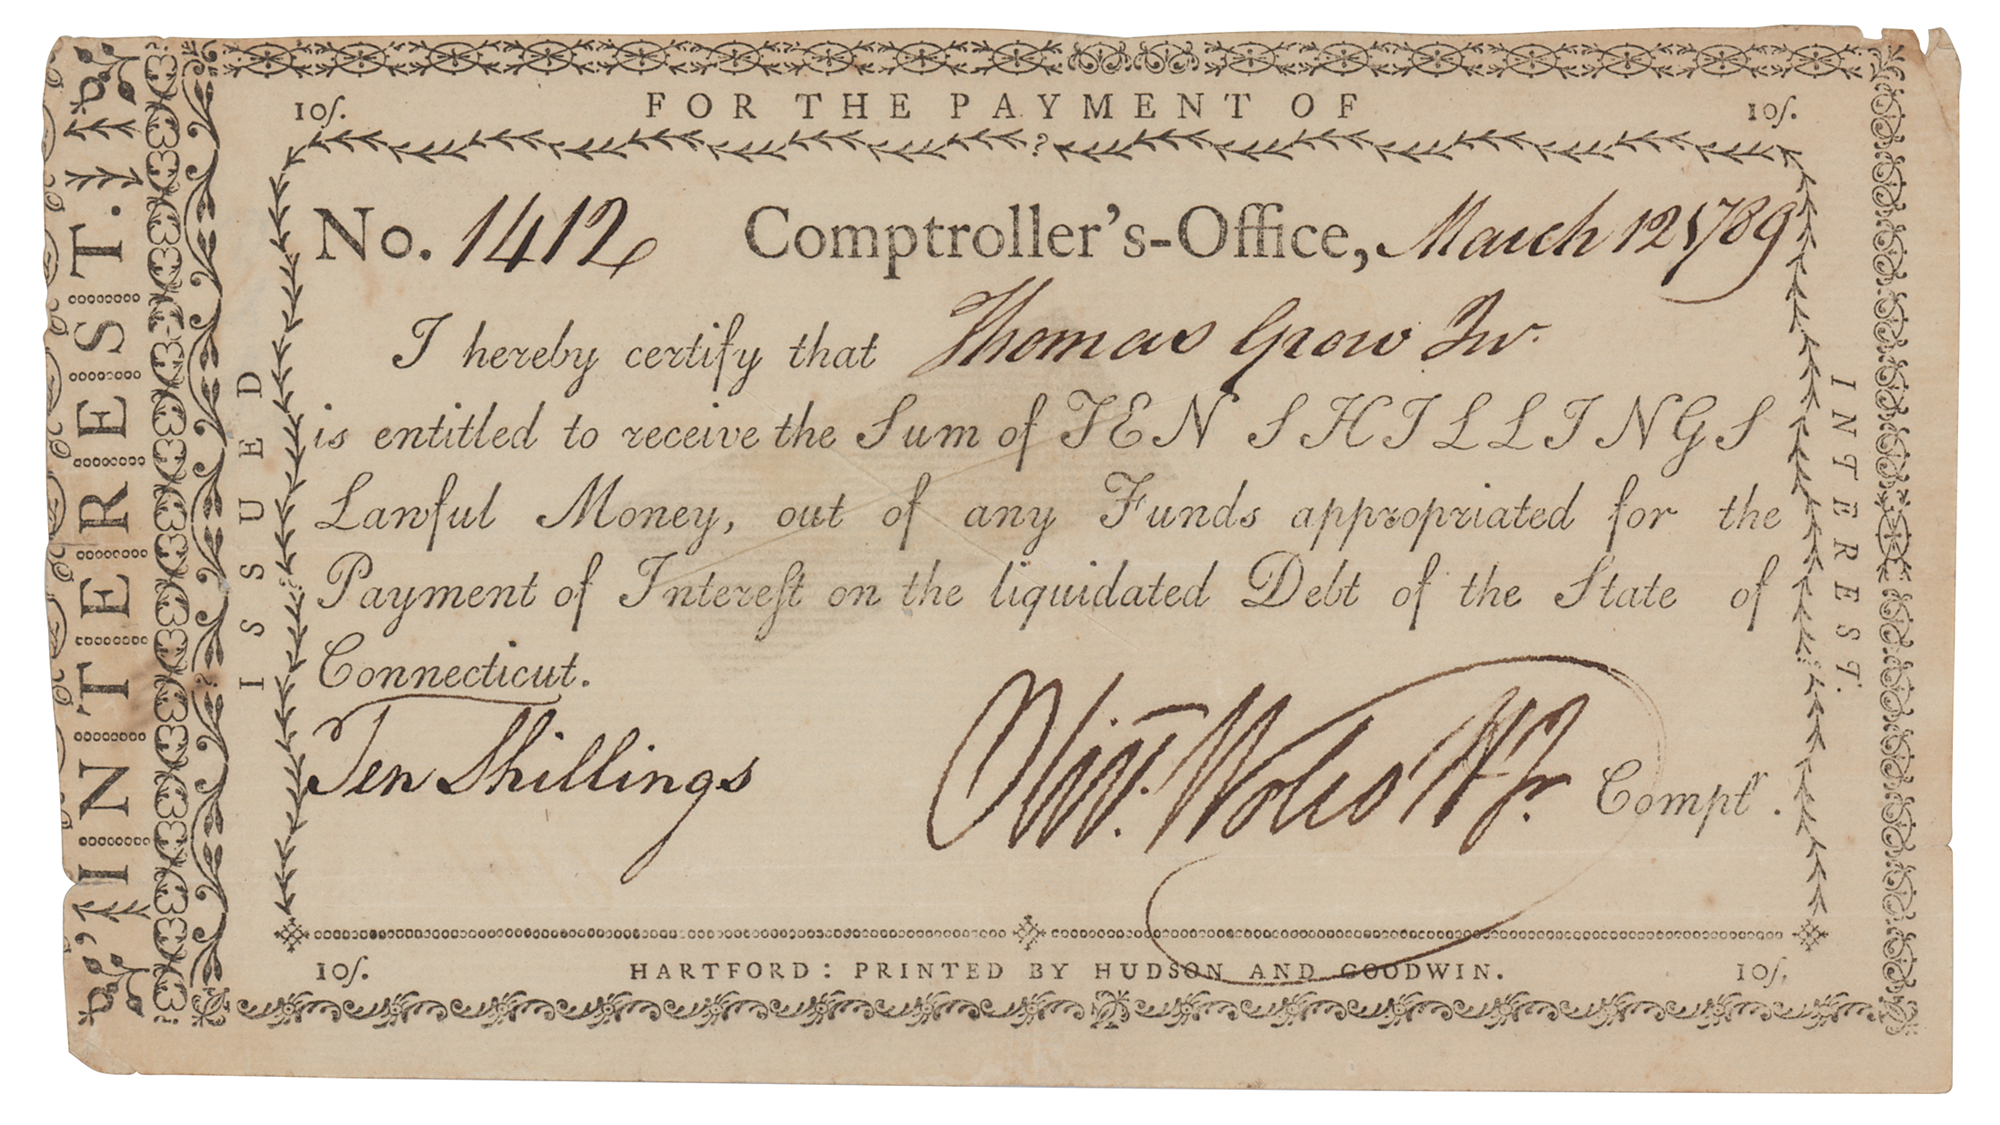 10ſ. FOR THE PAYMENT OF 10ſ.
No. 1412 Comptroller's-Office, March 12 1789
I hereby certify that Thomas Grow Jur.
is entitled to receive the Sum of TEN SHILLINGS
Lawful Money, out of any Funds appropriated for the
Payment of Intereſt on the liquidated Debt of the State of
Connecticut.
Ten Shillings Olivr. Wolcott Jr. Comptr.
10ſ. HARTFORD: PRINTED BY HUDSON AND GOODWIN. 10ſ.
INTEREST.
ISSUED
INTEREST.